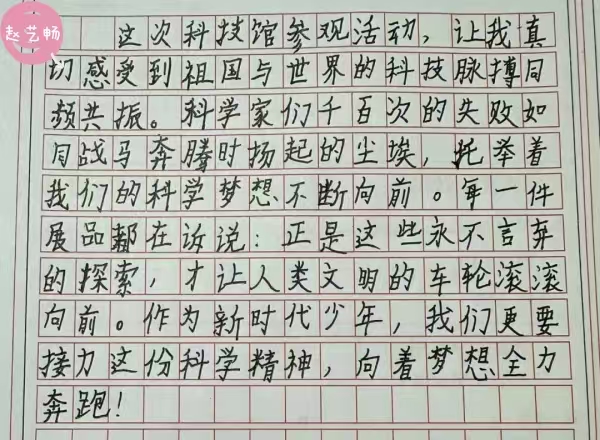 赵艺畅
这次科技馆参观活动，让我真
切感受到祖国与世界的科技脉搏同
频共振。科学家们千百次的失败如
同战马奔腾时扬起的尘埃，托举着
我们的科学梦想不断向前。每一件
展品都在诉说：正是这些永不言弃
的探索，才让人类文明的车轮滚滚
向前。作为新时代少年，我们更要
接力这份科学精神，向着梦想全力
奔跑！